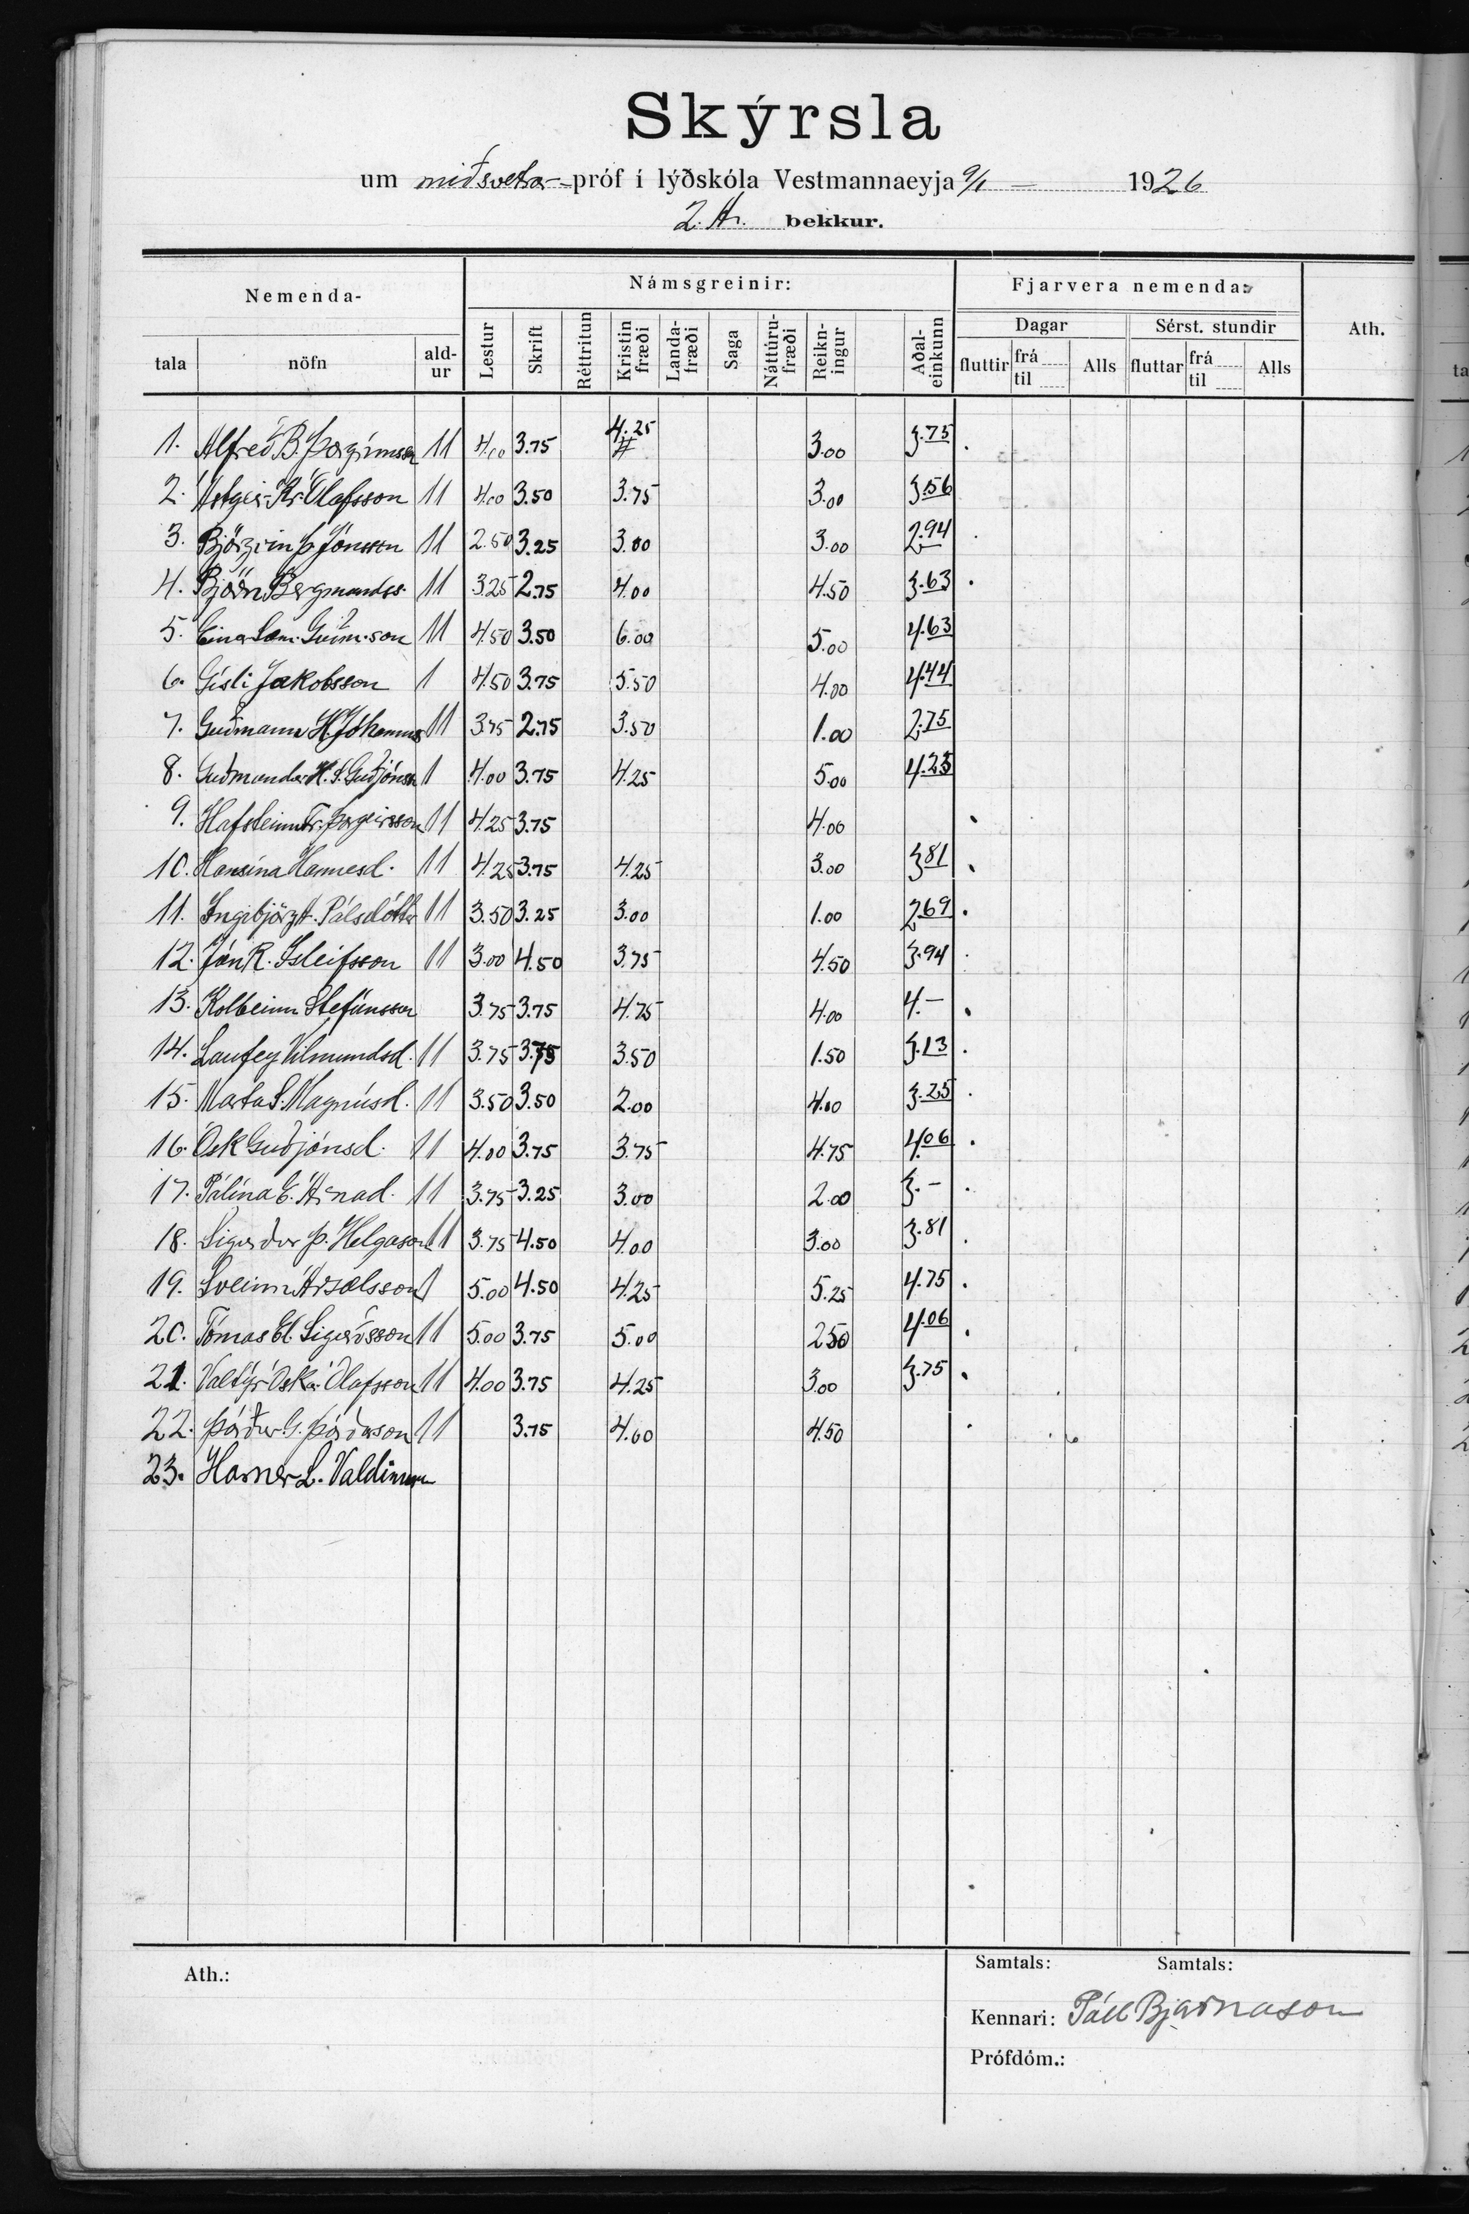 Skýrsla
um miðsvetrar-próf í lýðskóla Vestmannaeyja 9/1 — 1926
2. A. bekkur.
Nemenda- Námsgreinir: Fjarvera nemenda: Ath.
tala nöfn ald-ur Lestur Skrift Réttritun Kristin fræði Landa-fræði Saga Náttúru-fræði Reikn-ingur Aðal-einkunn Dagar Sérst. stundir
fluttir frá til Alls fluttar frá til Alls
1. Alfreð B. Þorgrímsson 11 4.00 3.75 4.25 3.00 3.75
2. Ástgeir Kr. Ólafsson 11 4.00 3.50 3.75 3.00 3.56
3. Björgvin Þ. Jónsson 11 2.50 3.25 3.00 3.00 2.94
4. Björn Bergmundss. 11 3.25 2.75 4.00 4.50 3.63
5. Einar Sæm. Guðm.son 11 4.50 3.50 6.00 5.00 4.63
6. Gísli Jakobsson 1 4.50 3.75 5.50 4.00 4.44
7. Guðmann H. 11 3.75 2.75 3.50 1.00 2.75
8. Guðmundur H. S. Guðjónsson 1 4.00 3.75 4.25 5.00 4.25
9. Hafsteinn Fr. Þorgeirsson 11 4.25 3.75 4.00
10. Hansína Hannesd. 11 4.25 3.75 4.25 3.00 3.81
11. Ingibjörg A. Pálsdóttir 11 3.50 3.25 3.00 1.00 2.69
12. Jón R. Ísleifsson 11 3.00 4.50 3.75 4.50 3.94
13. Kolbeinn Stefánsson 3.75 3.75 4.75 4.00 4.—
14. Laufey Vilmundsd. 11 3.75 3.75 3.50 1.50 3.13
15. Marta S. Magnúsd. 11 3.50 3.50 2.00 4.00 3.25
16. Ósk Guðjónsd. 11 4.00 3.75 3.75 4.75 4.06
17. Pálína E. Árnad. 11 3.75 3.25 3.00 2.00 3.—
18. Sigurður Þ. Helgason 11 3.75 4.50 4.00 3.00 3.81
19. Sveinn Ársælsson 1 5.00 4.50 4.25 5.25 4.75
20. Tómas El. Sigurðsson 11 5.00 3.75 5.00 2.50 4.06
21. Valtýr Óskar Ólafsson 11 4.00 3.75 4.25 3.00 3.75
22. Þórður G. Þórðarson 11 3.75 4.60 4.50
23. L.
Ath.: Samtals: Samtals:
Kennari: Páll Bjarnason
Prófdóm.: